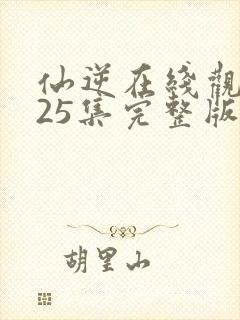 仙逆在线觀
25集完整版
胡里山